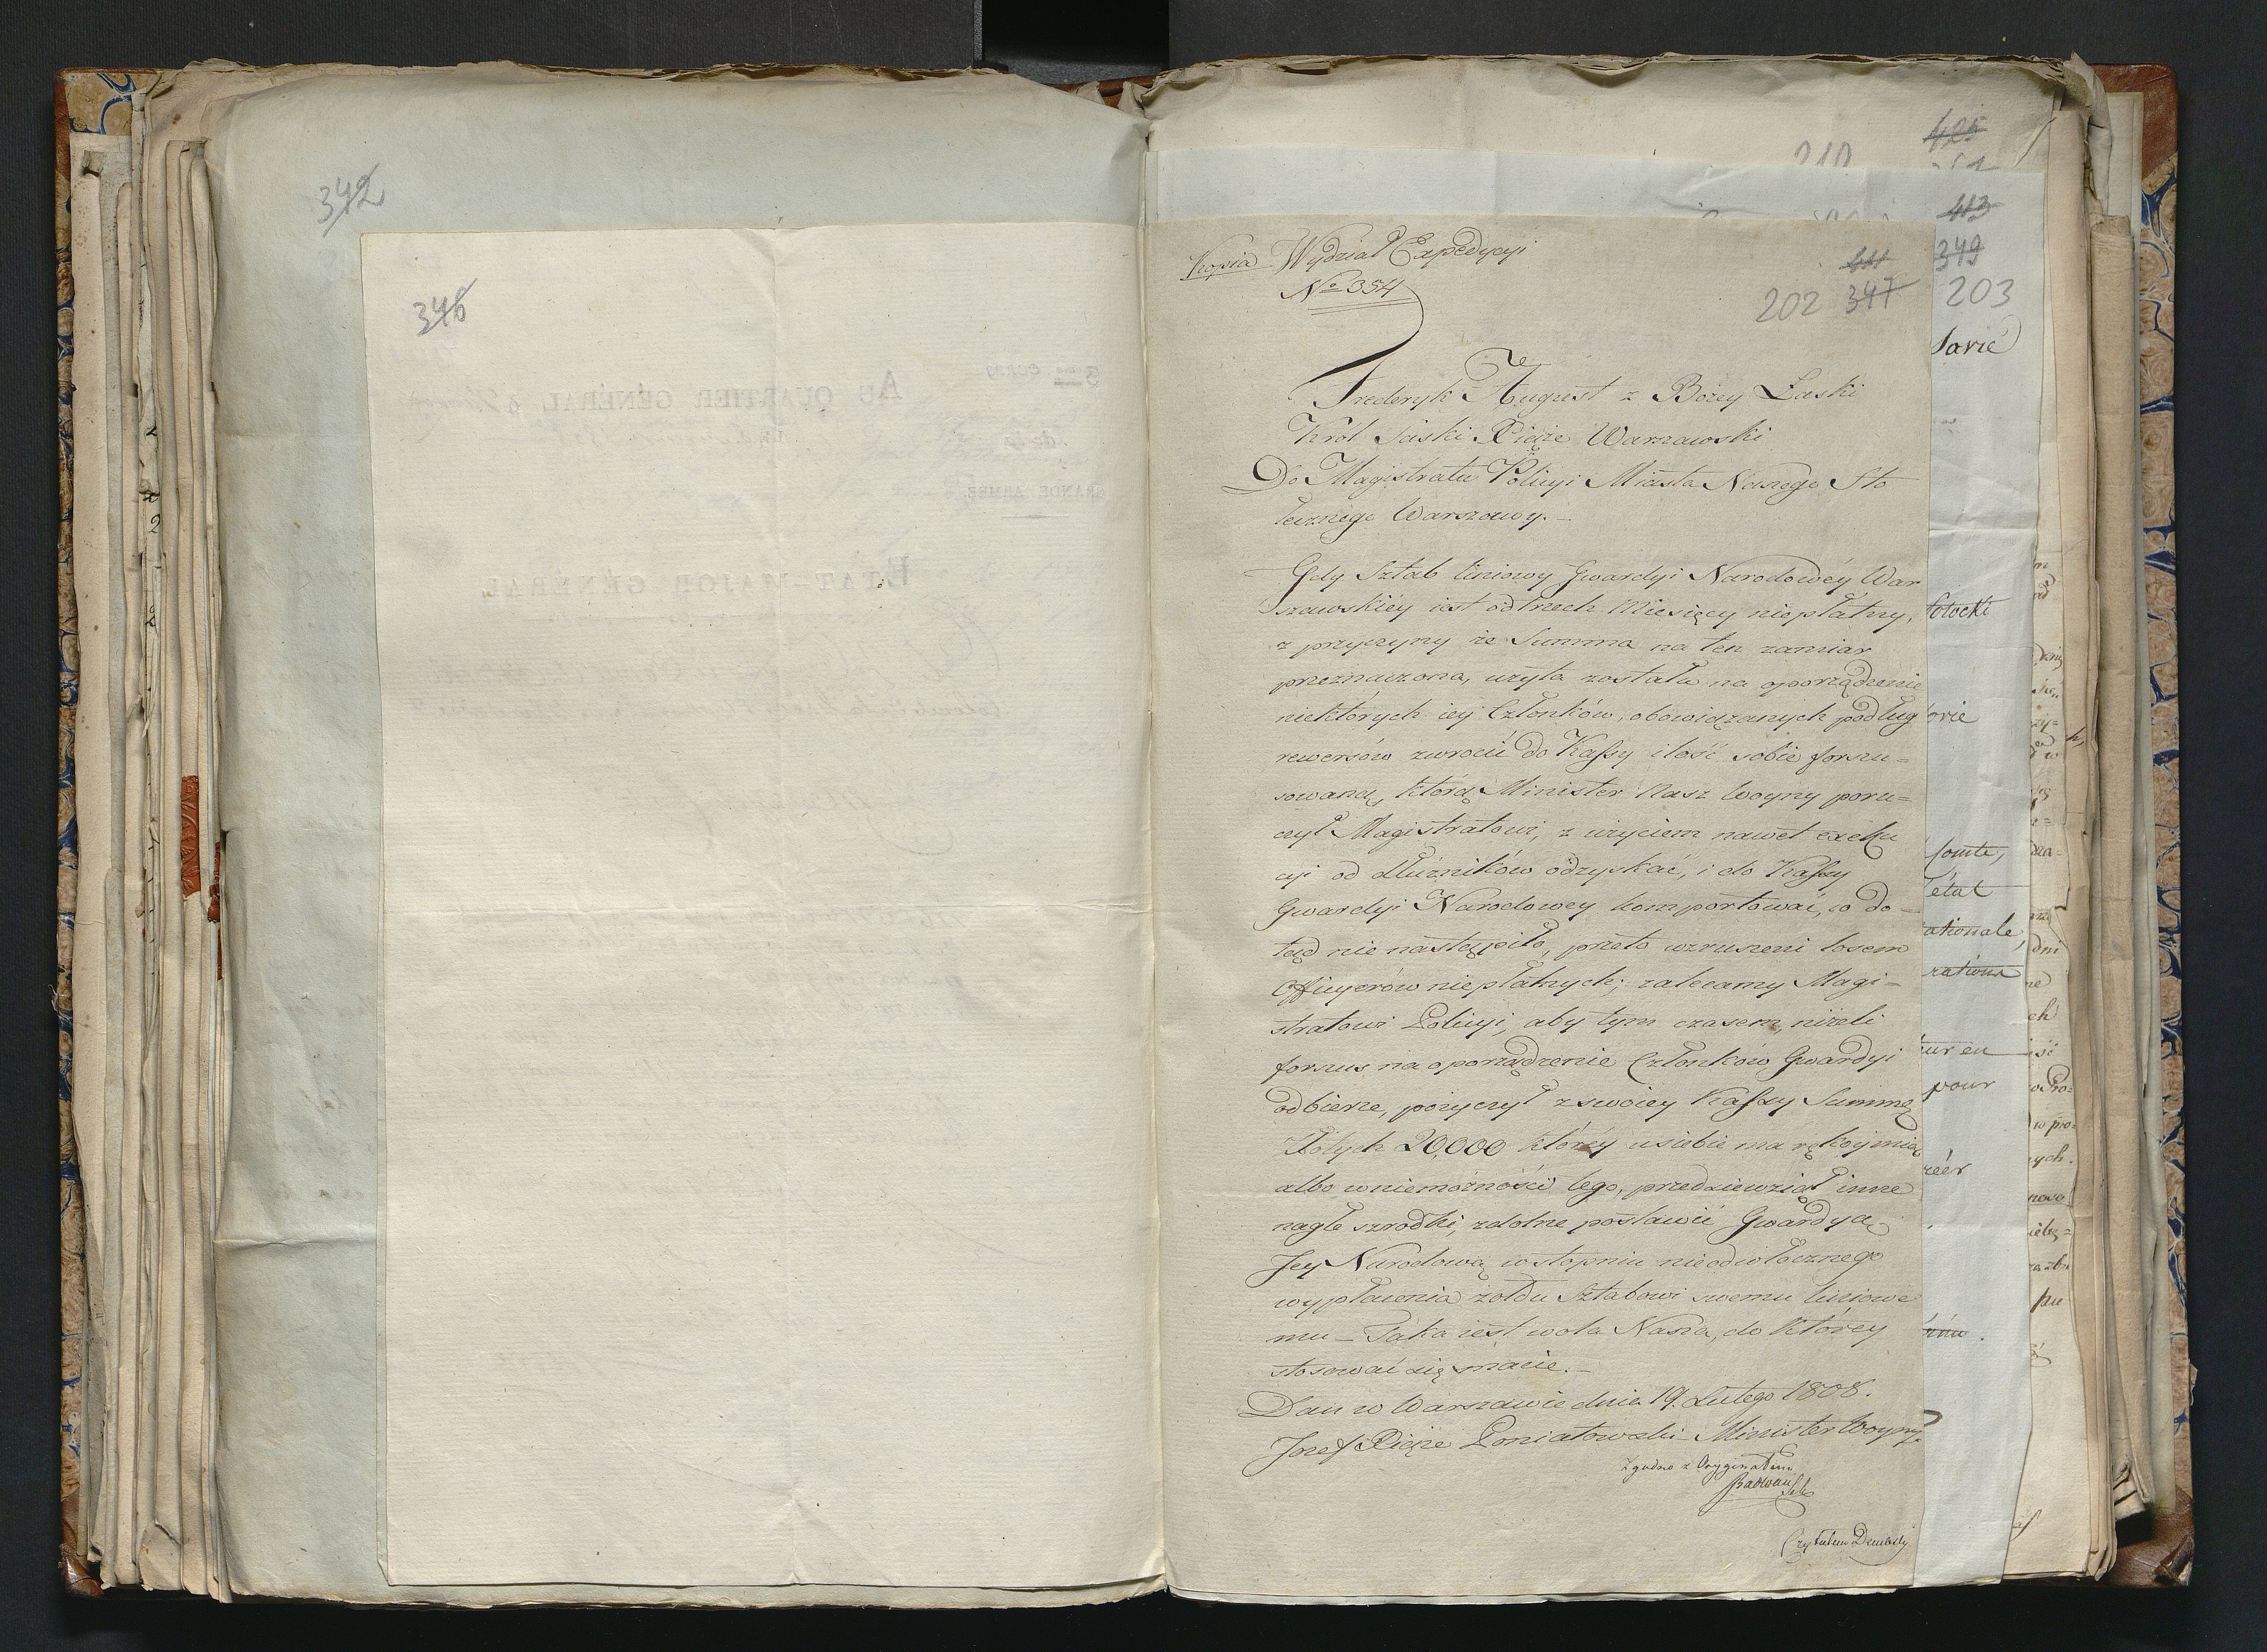 342
346
Kopia Wydział Expedycyi
No 354
202 347
Frederyk August z Bożey Łaski
Król Saski Xiąże Warszawski
Do Magistratu Policyi Miasta Naszego Sto
łecznego Warszawy. –
Gdy Sztab liniowy Gwardyi Narodowéy War
szawskiéy iest od trzech Miesięcy niepłatny,
z przyczyny że Summa na ten zamiar
przeznaczona, użyta została na oporządzenie
niektórych iey Członków, obowiązanych podług
rewersów zwrócić do Kassy ilość sobie forszu=
sowaną, którą Minister Nasz Woyny poru=
czył Magistratowi, z użyciem nawet exeku
cyi od dłużników odzyskać, i do Kassy
Gwardyi Narodowey komportować, co do-
tąd nie nastąpiło, przeto wzruszeni losem
Officyerów niepłatnych; zalecamy Magi-
stratowi Policyi, aby tym czasem, niżeli
forszus na oporządzenie Członków Gwardyi
odbierze, pożyczył z swoiey Kassy Summę
Złotych 20,000 któréy u siebie ma rękoymią
albo w niemożności tego, przedziewziął inne
nagłe szrodki, zdolne postawić Gwardyą
Jey Narodową w stopniu nieodwłocznego
wypłacenia żołdu Sztabowi swemu liniowe
mu – Taka iest wola Nasza, do którey
stosować się macie. –
Dan w Warszawie dnia 19. Lutego 1808.
Jozef Xiąże Poniatowski Minister Woyny.
Zgodno z Oryginałem
Czytałem Dembowski
413
349
203
425
210
sarié
Potocki
orie
Comte,
état
ationale,
rations
eur en
pour
réer